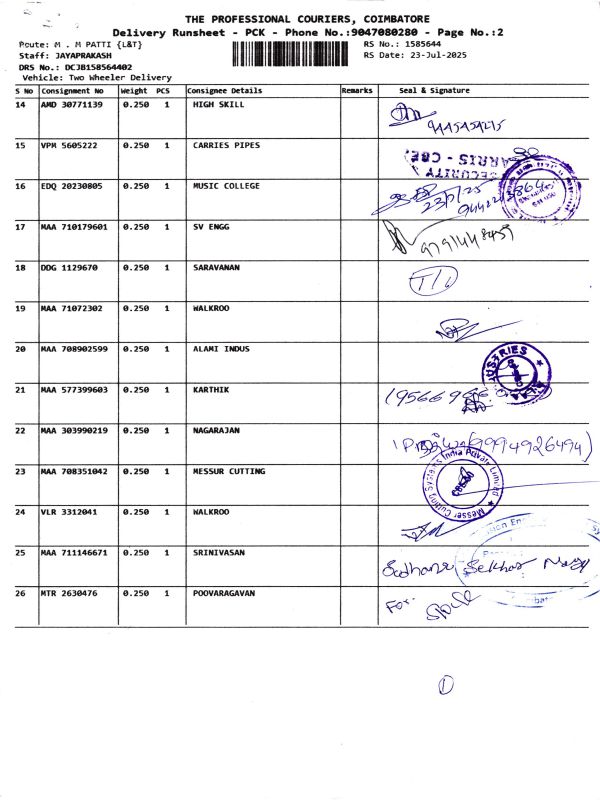 THE PROFESSIONAL COURIERS, COIMBATORE
Delivery Runsheet - PCK - Phone No.:9047080280 - Page No.:2
Route: M . M PATTI {L&T} RS No.: 1585644
Staff: JAYAPRAKASH RS Date: 23-Jul-2025
DRS No.: DCJB158564402
Vehicle: Two Wheeler Delivery
S No Consignment No Weight PCS Consignee Details Remarks Seal & Signature
14 AMD 30771139 0.250 1 HIGH SKILL
9445459215
15 VPM 5605222 0.250 1 CARRIES PIPES
SECURITY
ARRIS - CBE
16 EDQ 20230805 0.250 1 MUSIC COLLEGE
23/7/25
17 MAA 710179601 0.250 1 SV ENGG
18 DDG 1129670 0.250 1 SARAVANAN
19 MAA 71072302 0.250 1 WALKROO
20 MAA 708902599 0.250 1 ALAMI INDUS
USTRIES
21 MAA 577399603 0.250 1 KARTHIK
22 MAA 303990219 0.250 1 NAGARAJAN
(9994926494)
23 MAA 708351042 0.250 1 MESSUR CUTTING
Messer Cutting Systems India Private Limited
24 VLR 3312041 0.250 1 WALKROO
25 MAA 711146671 0.250 1 SRINIVASAN
Sekhar
26 MTR 2630476 0.250 1 POOVARAGAVAN
For
1